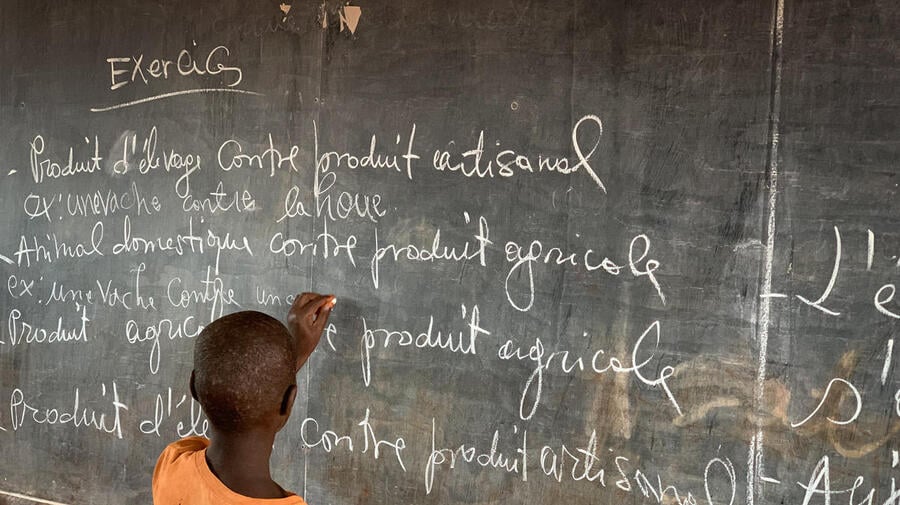 Exercices
- Produit d'élevage contre produit artisanal
ex: une vache contre la houe.
- Animal domestique contre produit agricole
ex: une vache contre un
- Produit agric e produit agricole
- Produit d'éle contre produit artisanal
- L'
- s'